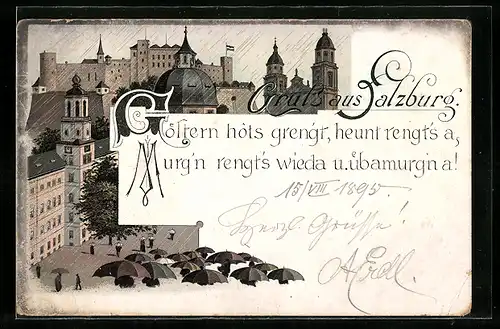 Gruss aus Salzburg.
Göstern hôts grengt, heunt rengt's a,
Murg'n rengt's wieda u. übamurg'n a!
15/VIII 1895.
Herzl. Grüsse!
A. Erdl.